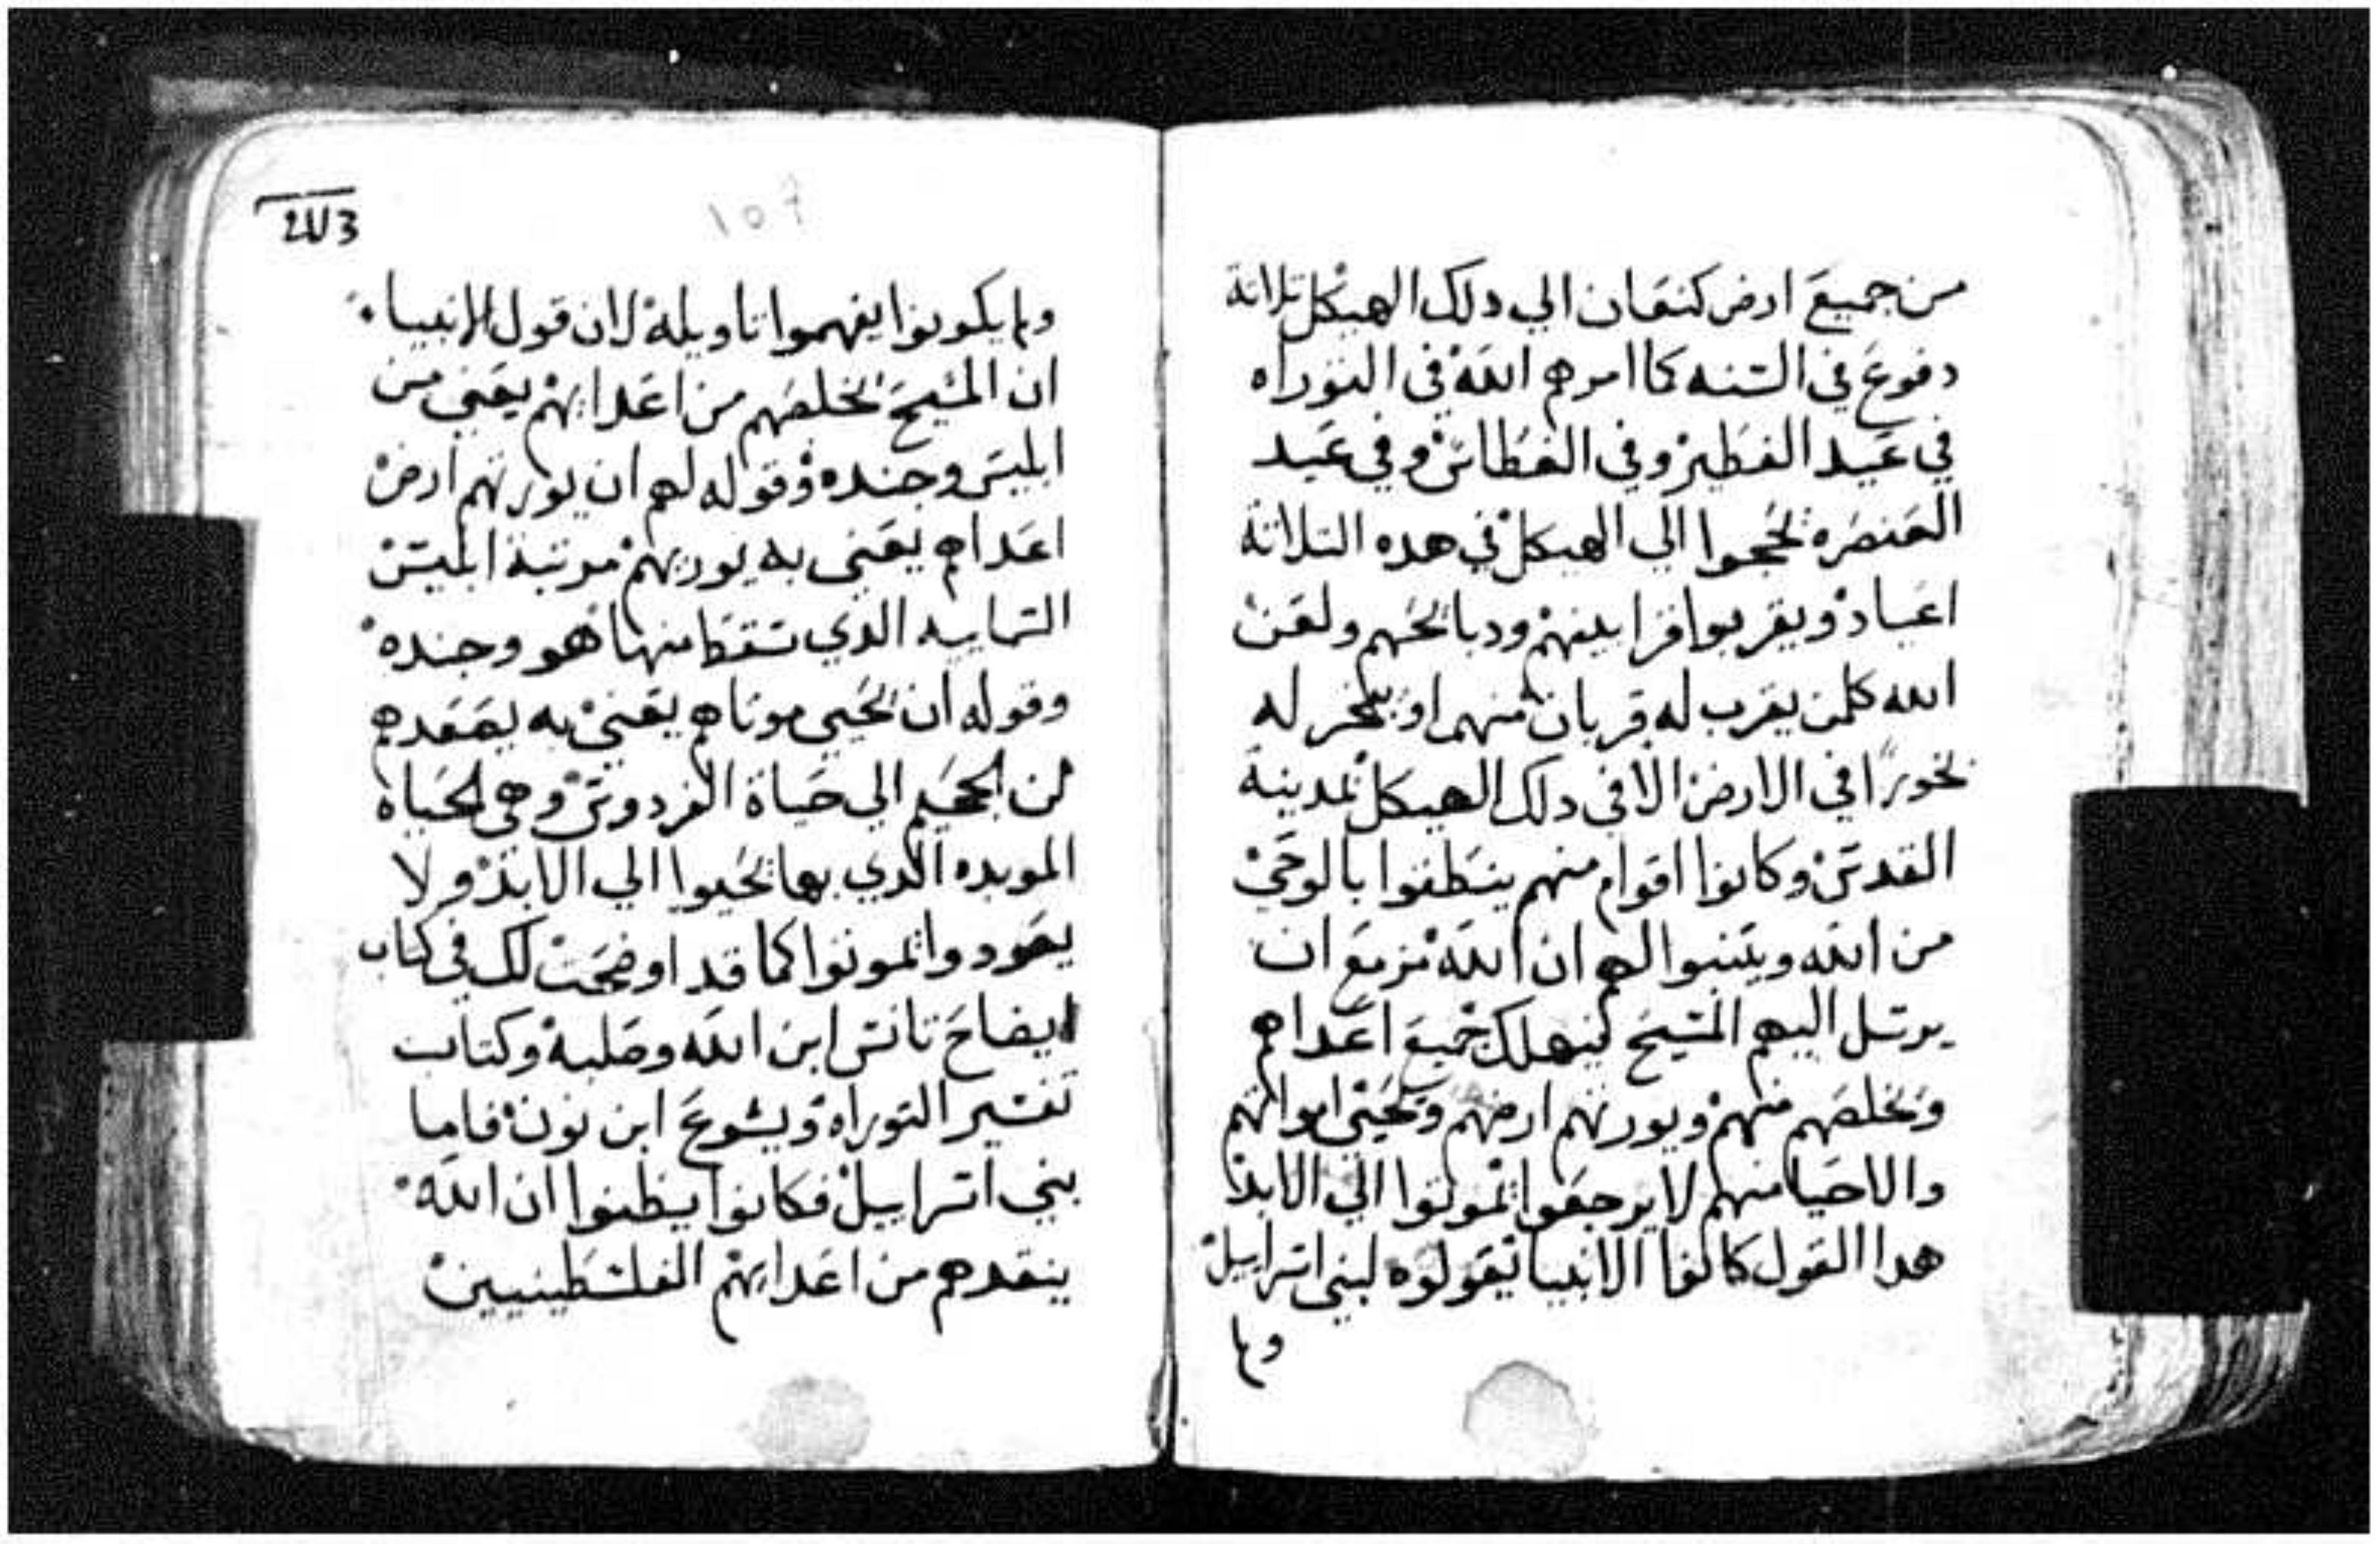 من جميع ارض كنعان الي دلك الهيكل تلاتة
دفوع في السنه كما امرهم الله في التوراه
في عيد الفطير وفي الغطاس وفي عيد
العنصره يحجوا الي الهيكل في هده التلاتة
اعياد ويقربوا قرابينهم ودبايحهم ولعن
الله كلمن يقرب له قربان منهم او يبخر له
بخورًا في الارض الا في دلك الهيكل بمدينة
القدس وكانوا اقوام منهم ينطقوا بالوحي
من الله ويتنبوا لهم ان الله مزمع ان
يرسل اليهم المسيح ليهلك جميع اعداهم
ويخلصهم منهم ويورتهم ارضهم ويحيي امواتهم
والاحيا منهم لا يرجعوا يموتوا الي الابد
هدا القول كانوا الانبيا يقولوه لبني اسراييل
ولم
ولم يكونوا يفهموا تاويله لان قول الانبياء
ان المسيح يخلصهم من اعدايهم يعني من
ابليس وجنده وقوله لهم ان يورتهم ارض
اعداهم يعني به يوريهم مرتبة ابليس
السماييه الدي سقط منها هو وجنده
وقوله ان يحيي موتاهم يعني به يصعدهم
من الجحيم الي حياة الفردوس وهي الحياه
الموبده الدي بها يحيوا الي الابد ولا
يعودوا يموتوا كما قد اوضحت لك في كتاب
ايضاح تانس ابن الله وصلبه وكتاب
تفسير التوراه ويشوع ابن نون فاما
بني اسراييل فكانوا يظنوا ان الله
ينقدهم من اعدايهم الفلسطينيين